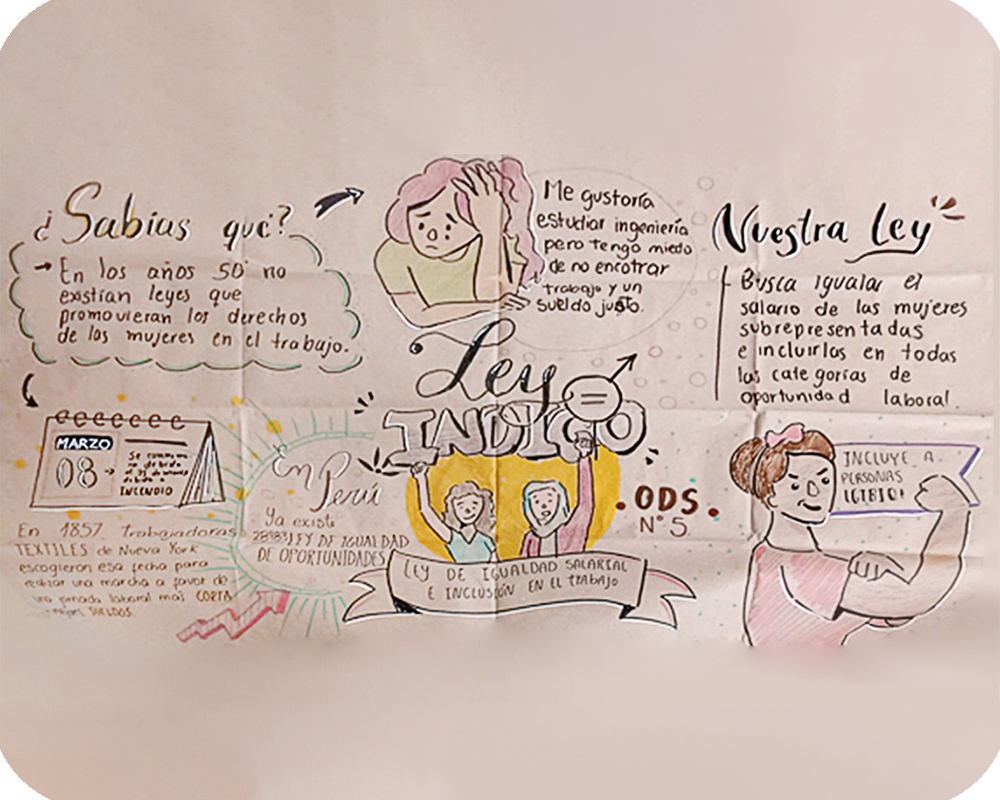 ¿Sabías que?
→ En los años 50' no
existían leyes que
promovieran los derechos
de las mujeres en el trabajo.
MARZO
08 →
INCENDIO
En 1857 trabajadoras
TEXTILES de Nueva York
escogieron esa fecha para
realizar una marcha a favor de
una jornada laboral más CORTA
SUELDOS.
Me gustaría
estudiar ingeniería
pero tengo miedo
de no encotrar
trabajo y un
sueldo justo.
Ley
INDIGO
En Perú
Ya existe
28983 LEY DE IGUALDAD
DE OPORTUNIDADES
.ODS.
N° 5.
LEY DE IGUALDAD SALARIAL
E INCLUSIÓN EN EL TRABAJO
Nuestra Ley
Busca igualar el
salario de las mujeres
subrepresentadas
e incluirlas en todas
las categorías de
oportunidad laboral.
INCLUYE A
PERSONAS